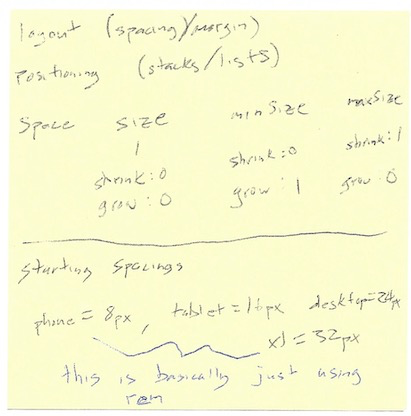 layout (spacing/margin)
Positioning (stacks/lists)
Space size minSize maxSize
1
shrink: 0 shrink: 0 shrink: 1
grow: 0 grow: 1 grow: 0
Starting Spacings
phone = 8px, tablet = 16px desktop = 24px
xl = 32px
this is basically just using
rem